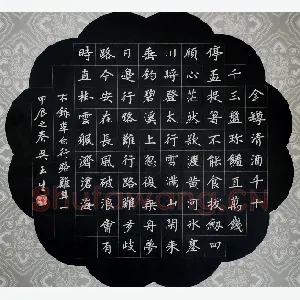 金樽清酒斗十
千玉盤珍饈直萬錢
停盃投箸不能食拔劍四
顧心茫然欲渡黃河冰塞
川將登太行雪滿山閒來
垂釣碧溪上忽復乘舟夢
日邊行路難行路難多歧
路今安在長風破浪會有
時直挂雲帆濟滄海
右錄李白行路難其一
甲辰之春吳玉